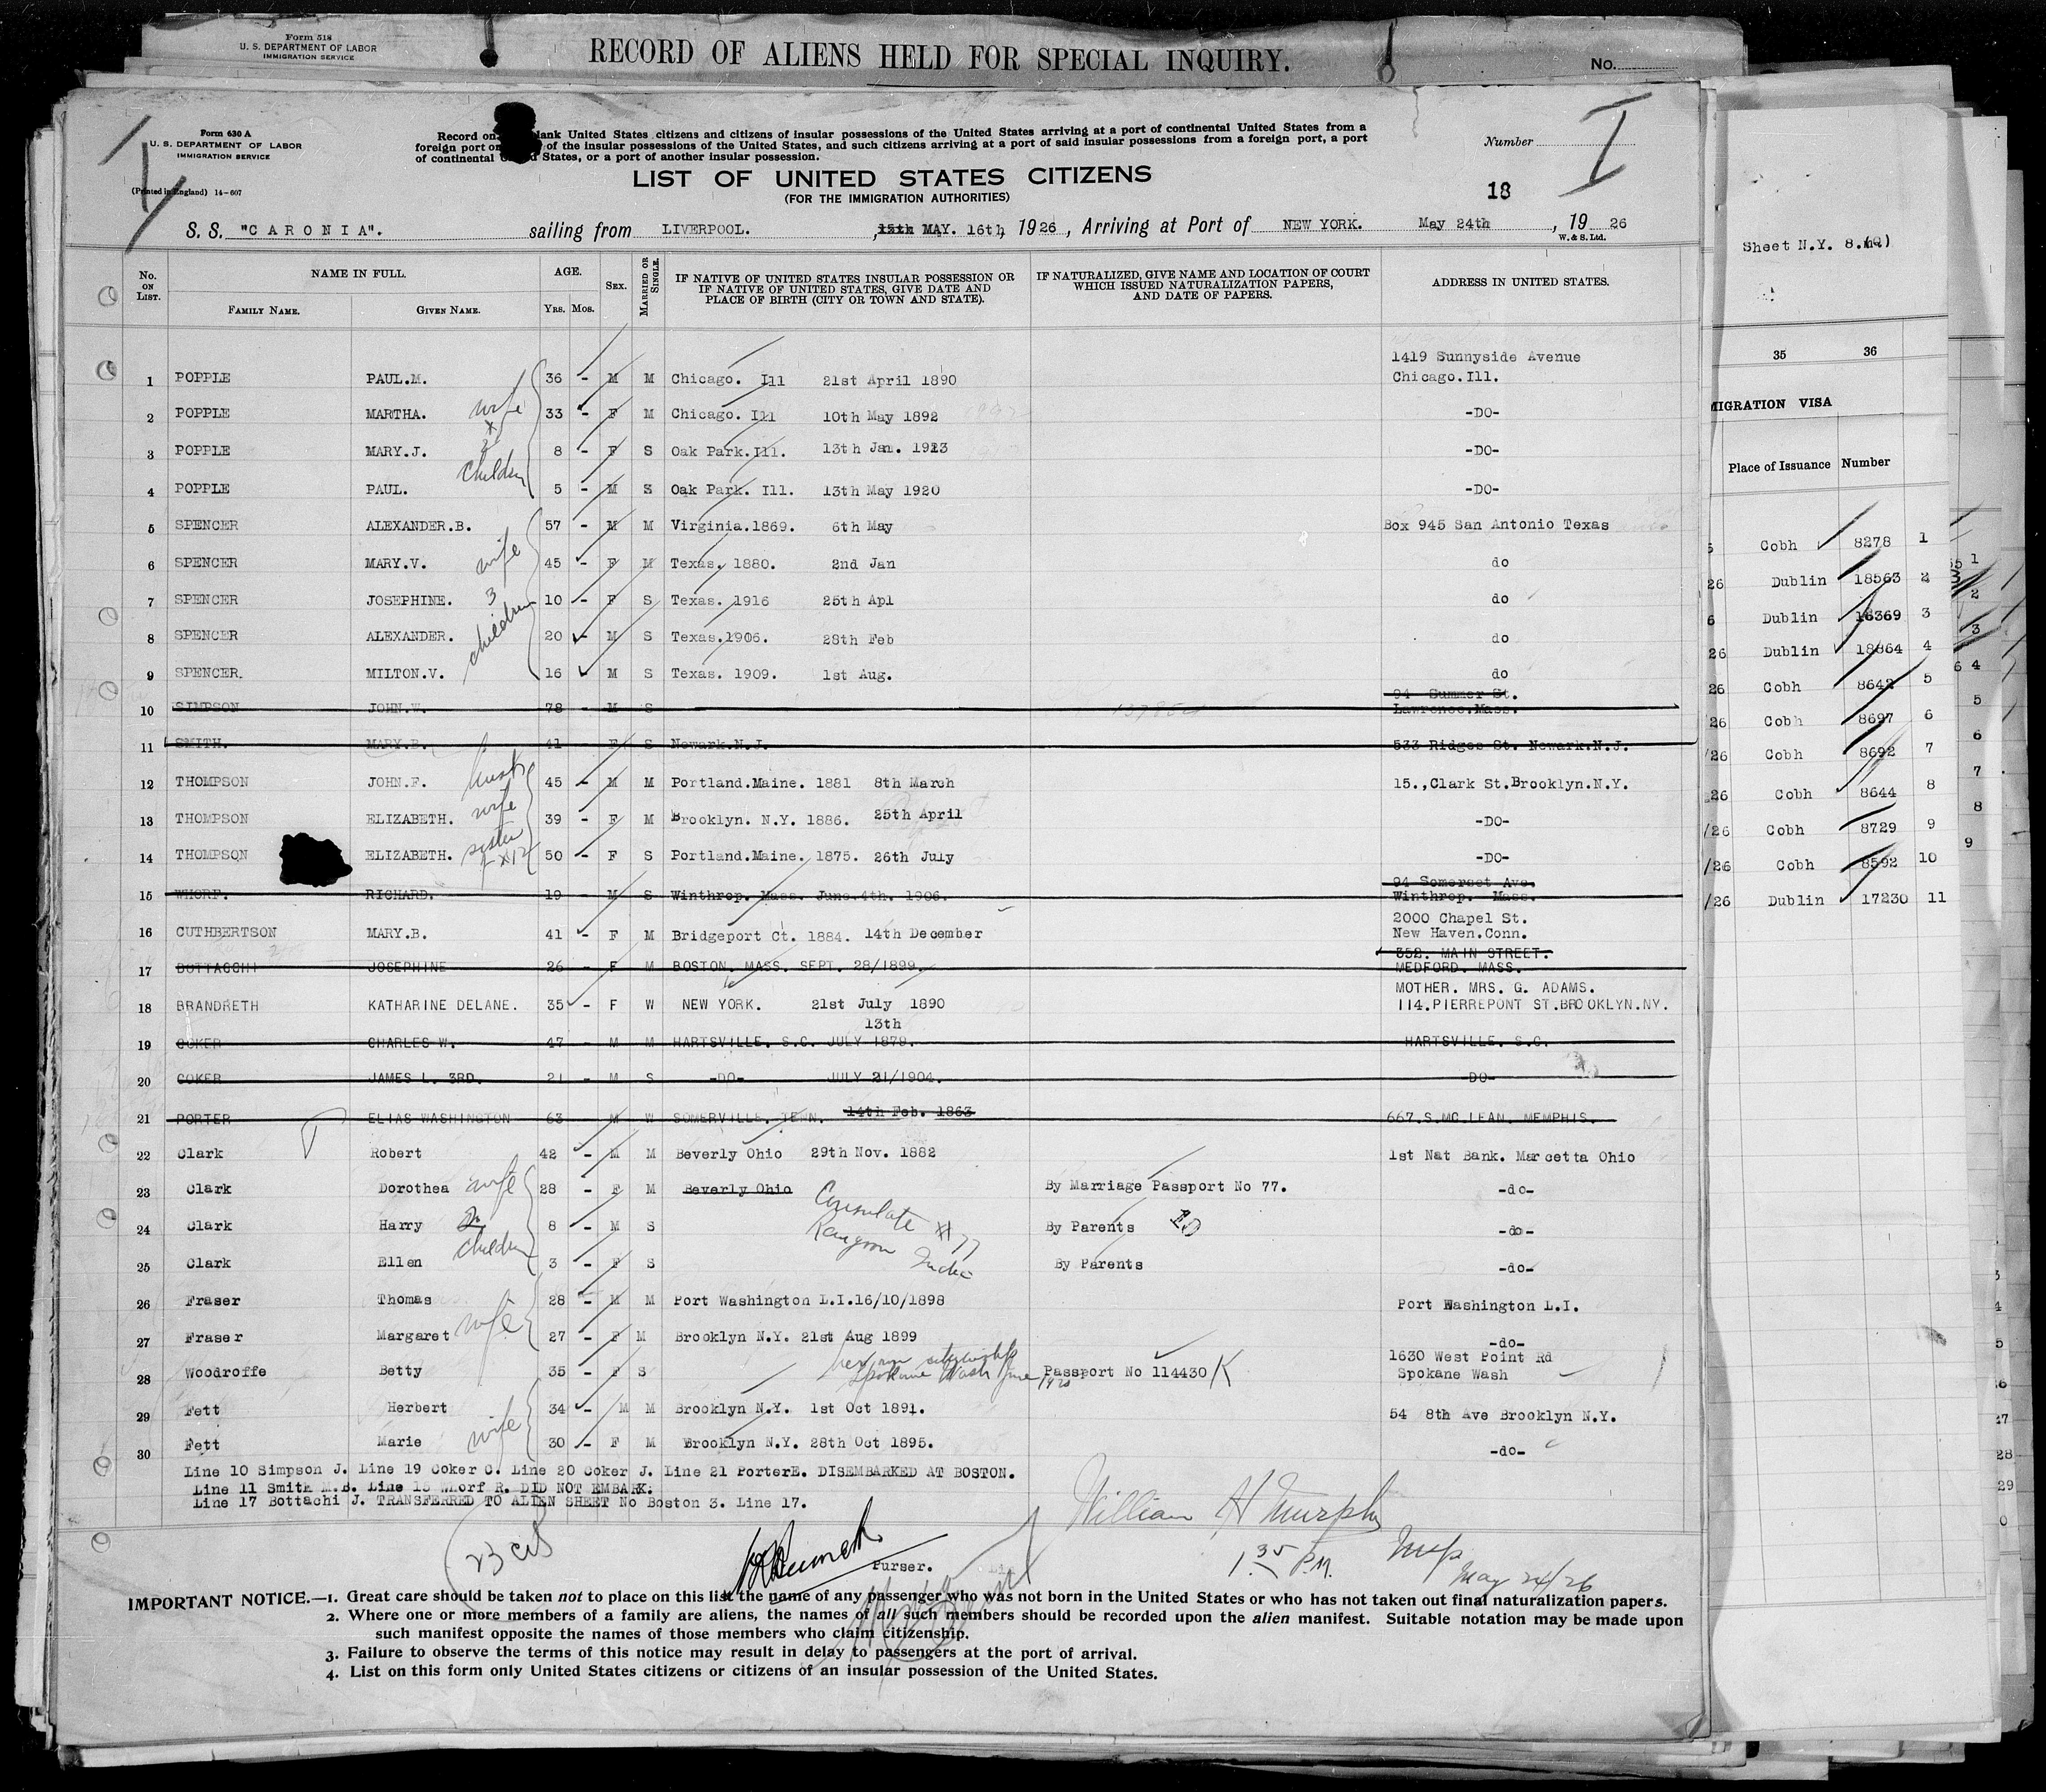 Form 518
U. S. DEPARTMENT OF LABOR
IMMIGRATION SERVICE
RECORD OF ALIENS HELD FOR SPECIAL INQUIRY.
No.
Form 630 A
U. S. DEPARTMENT OF LABOR
IMMIGRATION SERVICE
(Printed in England) 14-607
Record on blank United States citizens and citizens of insular possessions of the United States arriving at a port of continental United States from a
foreign port or of the insular possessions of the United States, and such citizens arriving at a port of said insular possessions from a foreign port, a port
of continental United States, or a port of another insular possession.
Number I
LIST OF UNITED STATES CITIZENS
(FOR THE IMMIGRATION AUTHORITIES)
18
S. S. "CARONIA". sailing from LIVERPOOL. , 15th MAY. 16th, 1926, Arriving at Port of NEW YORK. May 24th , 19 26
W. & S. Ltd.
No. ON LIST. NAME IN FULL. AGE. SEX. MARRIED OR SINGLE. IF NATIVE OF UNITED STATES INSULAR POSSESSION OR IF NATIVE OF UNITED STATES, GIVE DATE AND PLACE OF BIRTH (CITY OR TOWN AND STATE). IF NATURALIZED, GIVE NAME AND LOCATION OF COURT WHICH ISSUED NATURALIZATION PAPERS, AND DATE OF PAPERS. ADDRESS IN UNITED STATES.
FAMILY NAME. GIVEN NAME. YRS. MOS.
1419 Sunnyside Avenue
1 POPPLE PAUL.M. 36 - M M Chicago. Ill 21st April 1890 Chicago.Ill.
2 POPPLE MARTHA. wife 33 - F M Chicago. Ill 10th May 1892 -DO-
3 POPPLE MARY.J. 2 8 - F S Oak Park.Ill. 13th Jan. 1913 -DO-
4 POPPLE PAUL. children 5 - M S Oak Park. Ill. 13th May 1920 -DO-
5 SPENCER ALEXANDER.B. 57 - M M Virginia.1869. 6th May Box 945 San Antonio Texas
6 SPENCER MARY.V. wife 45 - F M Texas. 1880. 2nd Jan do
7 SPENCER JOSEPHINE. 3 10 - F S Texas. 1916 25th Apl do
8 SPENCER ALEXANDER. children 20 - M S Texas.1906. 28th Feb do
9 SPENCER. MILTON.V. 16 M S Texas. 1909. 1st Aug. do
94 Summer St.
10 SIMPSON JOHN.W. 78 - M S Lawrence.Mass.
11 SMITH. MARY.B. 41 - F S Newark.N.J. 533 Ridges St. Newark.N.J.
12 THOMPSON JOHN.F. husb 45 - M M Portland.Maine. 1881 8th March 15.,Clark St.Brooklyn.N.Y.
13 THOMPSON ELIZABETH. wife 39 - F M Brooklyn. N.Y. 1886. 25th April -DO-
14 THOMPSON ELIZABETH. sister 50 - F S Portland.Maine. 1875. 26th July -DO-
94 Somerset Ave.
15 WHORF. RICHARD. 19 M S Winthrop. Mass. June.4th. 1906. Winthrop. Mass.
2000 Chapel St.
16 CUTHBERTSON MARY.B. 41 - F M Bridgeport Ct. 1884. 14th December New Haven.Conn.
352. MAIN STREET.
17 BOTTACCHI JOSEPHINE 26 - F M BOSTON. MASS. SEPT. 28/1899. MEDFORD. MASS.
MOTHER. MRS. G. ADAMS.
18 BRANDRETH KATHARINE DELANE. 35 - F W NEW YORK. 21st July 1890 114.PIERREPONT ST.BROOKLYN.NY.
13th
19 COKER CHARLES W. 47 - M M HARTSVILLE. S.C. JULY 1879. HARTSVILLE. S.C.
20 COKER JAMES L. 3RD. 21 - M S -DO- JULY 21/1904. -DO-
21 PORTER ELIAS WASHINGTON 63 M W SOMERVILLE. TENN. 14th Feb. 1863 667.S.MC.LEAN. MEMPHIS.
22 Clark Robert 42 - M M Beverly Ohio 29th Nov. 1882 1st Nat Bank. Marcetta Ohio
23 Clark Dorothea wife 28 - F M Beverly Ohio By Marriage Passport No 77. -do-
24 Clark Harry 2 8 - M S Consulate By Parents -do-
25 Clark Ellen children 3 - F S Rangoon India 77 By Parents -do-
26 Fraser Thomas 28 - M M Port Washington L.I.16/10/1898 Port Washington L.I.
27 Fraser Margaret wife 27 - F M Brooklyn N.Y. 21st Aug 1899 -do-
1630 West Point Rd
28 Woodroffe Betty 35 - F S her own citizenship Spokane Wash June 1920 Passport No 114430 Spokane Wash
29 Fett Herbert 34 - M M Brooklyn N.Y. 1st Oct 1891. 54 8th Ave Brooklyn N.Y.
30 Fett Marie wife 30 - F M Brooklyn N.Y. 28th Oct 1895. -do-
Line 10 Simpson J. Line 19 Coker C. Line 20 Coker J. Line 21 PorterE. DISEMBARKED AT BOSTON.
Line 11 Smith M.B. Line 15 Whorf R. DID NOT EMBARK.
Line 17 Bottachi J. TRANSFERRED TO ALIEN SHEET No Boston 3. Line 17.
William H Murphy
23
Purser.
1.35 P.M.
May 24/26
IMPORTANT NOTICE.—1. Great care should be taken not to place on this list the name of any passenger who was not born in the United States or who has not taken out final naturalization papers.
2. Where one or more members of a family are aliens, the names of all such members should be recorded upon the alien manifest. Suitable notation may be made upon
such manifest opposite the names of those members who claim citizenship.
3. Failure to observe the terms of this notice may result in delay to passengers at the port of arrival.
4. List on this form only United States citizens or citizens of an insular possession of the United States.
Sheet N.Y. 8.
35 36
MIGRATION VISA
Place of Issuance Number
Cobh 8278 1
26 Dublin 18563 2
6 Dublin 18369 3
26 Dublin 18864 4
26 Cobh 8642 5
26 Cobh 8697 6
/26 Cobh 8692 7
26 Cobh 8644 8
/26 Cobh 8729 9
/26 Cobh 8592 10
/26 Dublin 17230 11
1
2
3
4
5
6
7
8
9
28
29